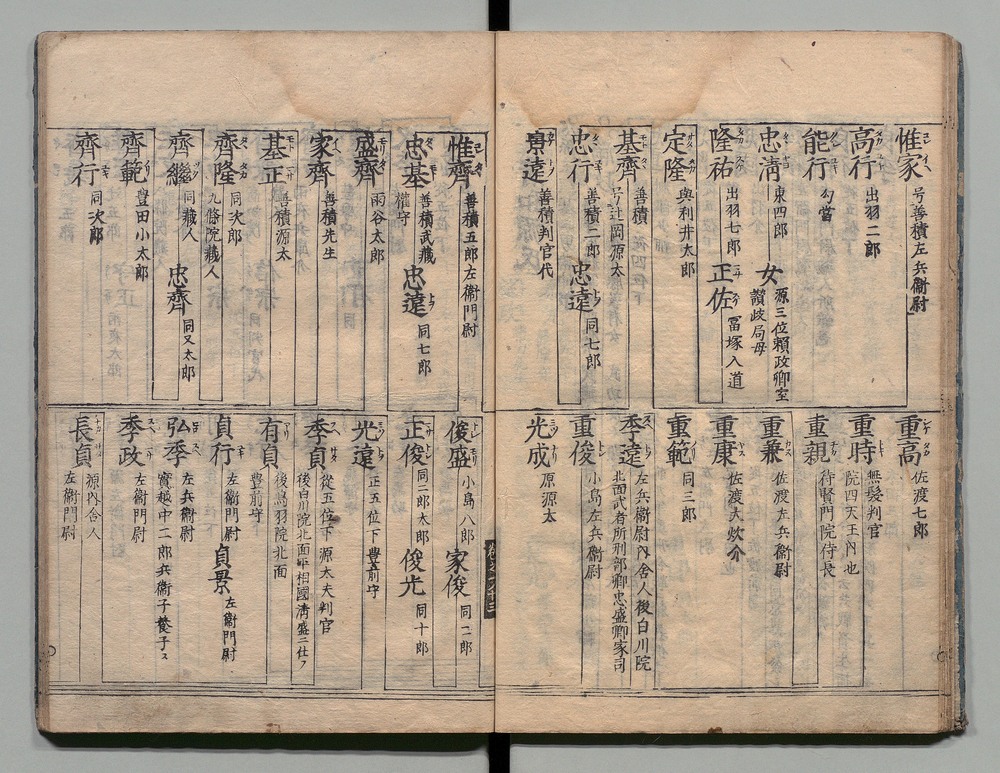 惟家 号善積左兵衞尉
高行 出羽二郎
能行 勾當
忠淸 東四郎
女 源三位頼政卿室
讃岐局母
隆祐 出羽七郎
正佐 冨塚入道
定隆 與利井太郎
基齊 善積
号辻岡源太
忠行 善積二郎
忠遠 同七郎
景遠 善積判官代
重高 佐渡七郎
重時 無髪判官
院四天王内也
重親 待賢門院侍長
重兼 佐渡左兵衞尉
重康 佐渡大炊介
重範 同三郎
季遠 左兵衞尉内舍人後白川院
北面武者所刑部卿忠盛卿家司
重俊 小島左兵衞尉
光成 原源太
惟齊 善積五郎左衞門尉
忠基 善積武藏
權守
忠遠 同七郎
盛齊 雨谷太郎
家齊 善積先生
基正 善積源太
齊隆 同次郎
九條院藏人
齊繼 同藏人
忠齊 同又太郎
齊範 豊田小太郎
齊行 同次郎
俊盛 小島八郎
家俊 同二郎
正俊 同三郎太郎
俊光 同十郎
光遠 正五位下豊前守
季貞 從五位下源太夫判官
後白川院北面平相國淸盛ニ仕フ
有貞 後鳥羽院北面
豊前守
貞行 左衞門尉
貞景 左衞門尉
弘季 左兵衞尉
季政 左衞門尉
長貞 源内舍人
左衞門尉